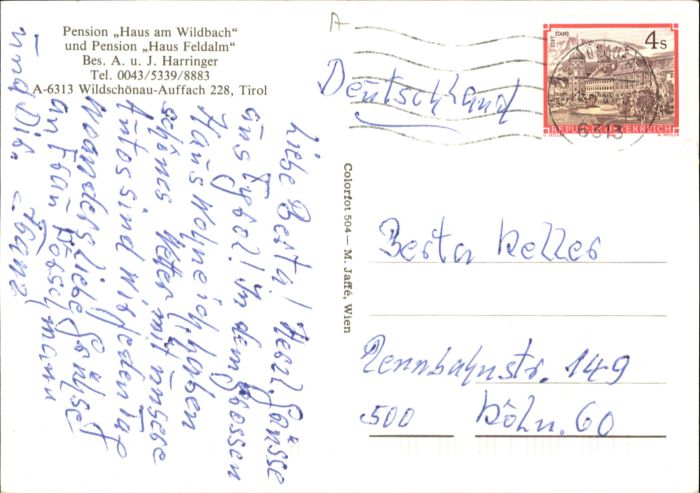 Pension „Haus am Wildbach"
und Pension „Haus Feldalm"
Bes. A. u. J. Harringer
Tel. 0043/5339/8883
A-6313 Wildschönau-Auffach 228, Tirol
A
STIFT STAMS
4 S
REPUBLIK ÖSTERREICH
6313
Deutschland
Liebe Berta! Herzl. Grüsse
aus Tyrol! In dem grossen
Haus wohne ich, haben
schönes Wetter mit unsere
Autos sind wir jeden Tag
woanders. Liebe Grüsse
an Frau
und Dir. Franz
Colorfot 504 — M. Jaffé, Wien
Berta Keller
Rennbahnstr. 149
500 Köln. 60